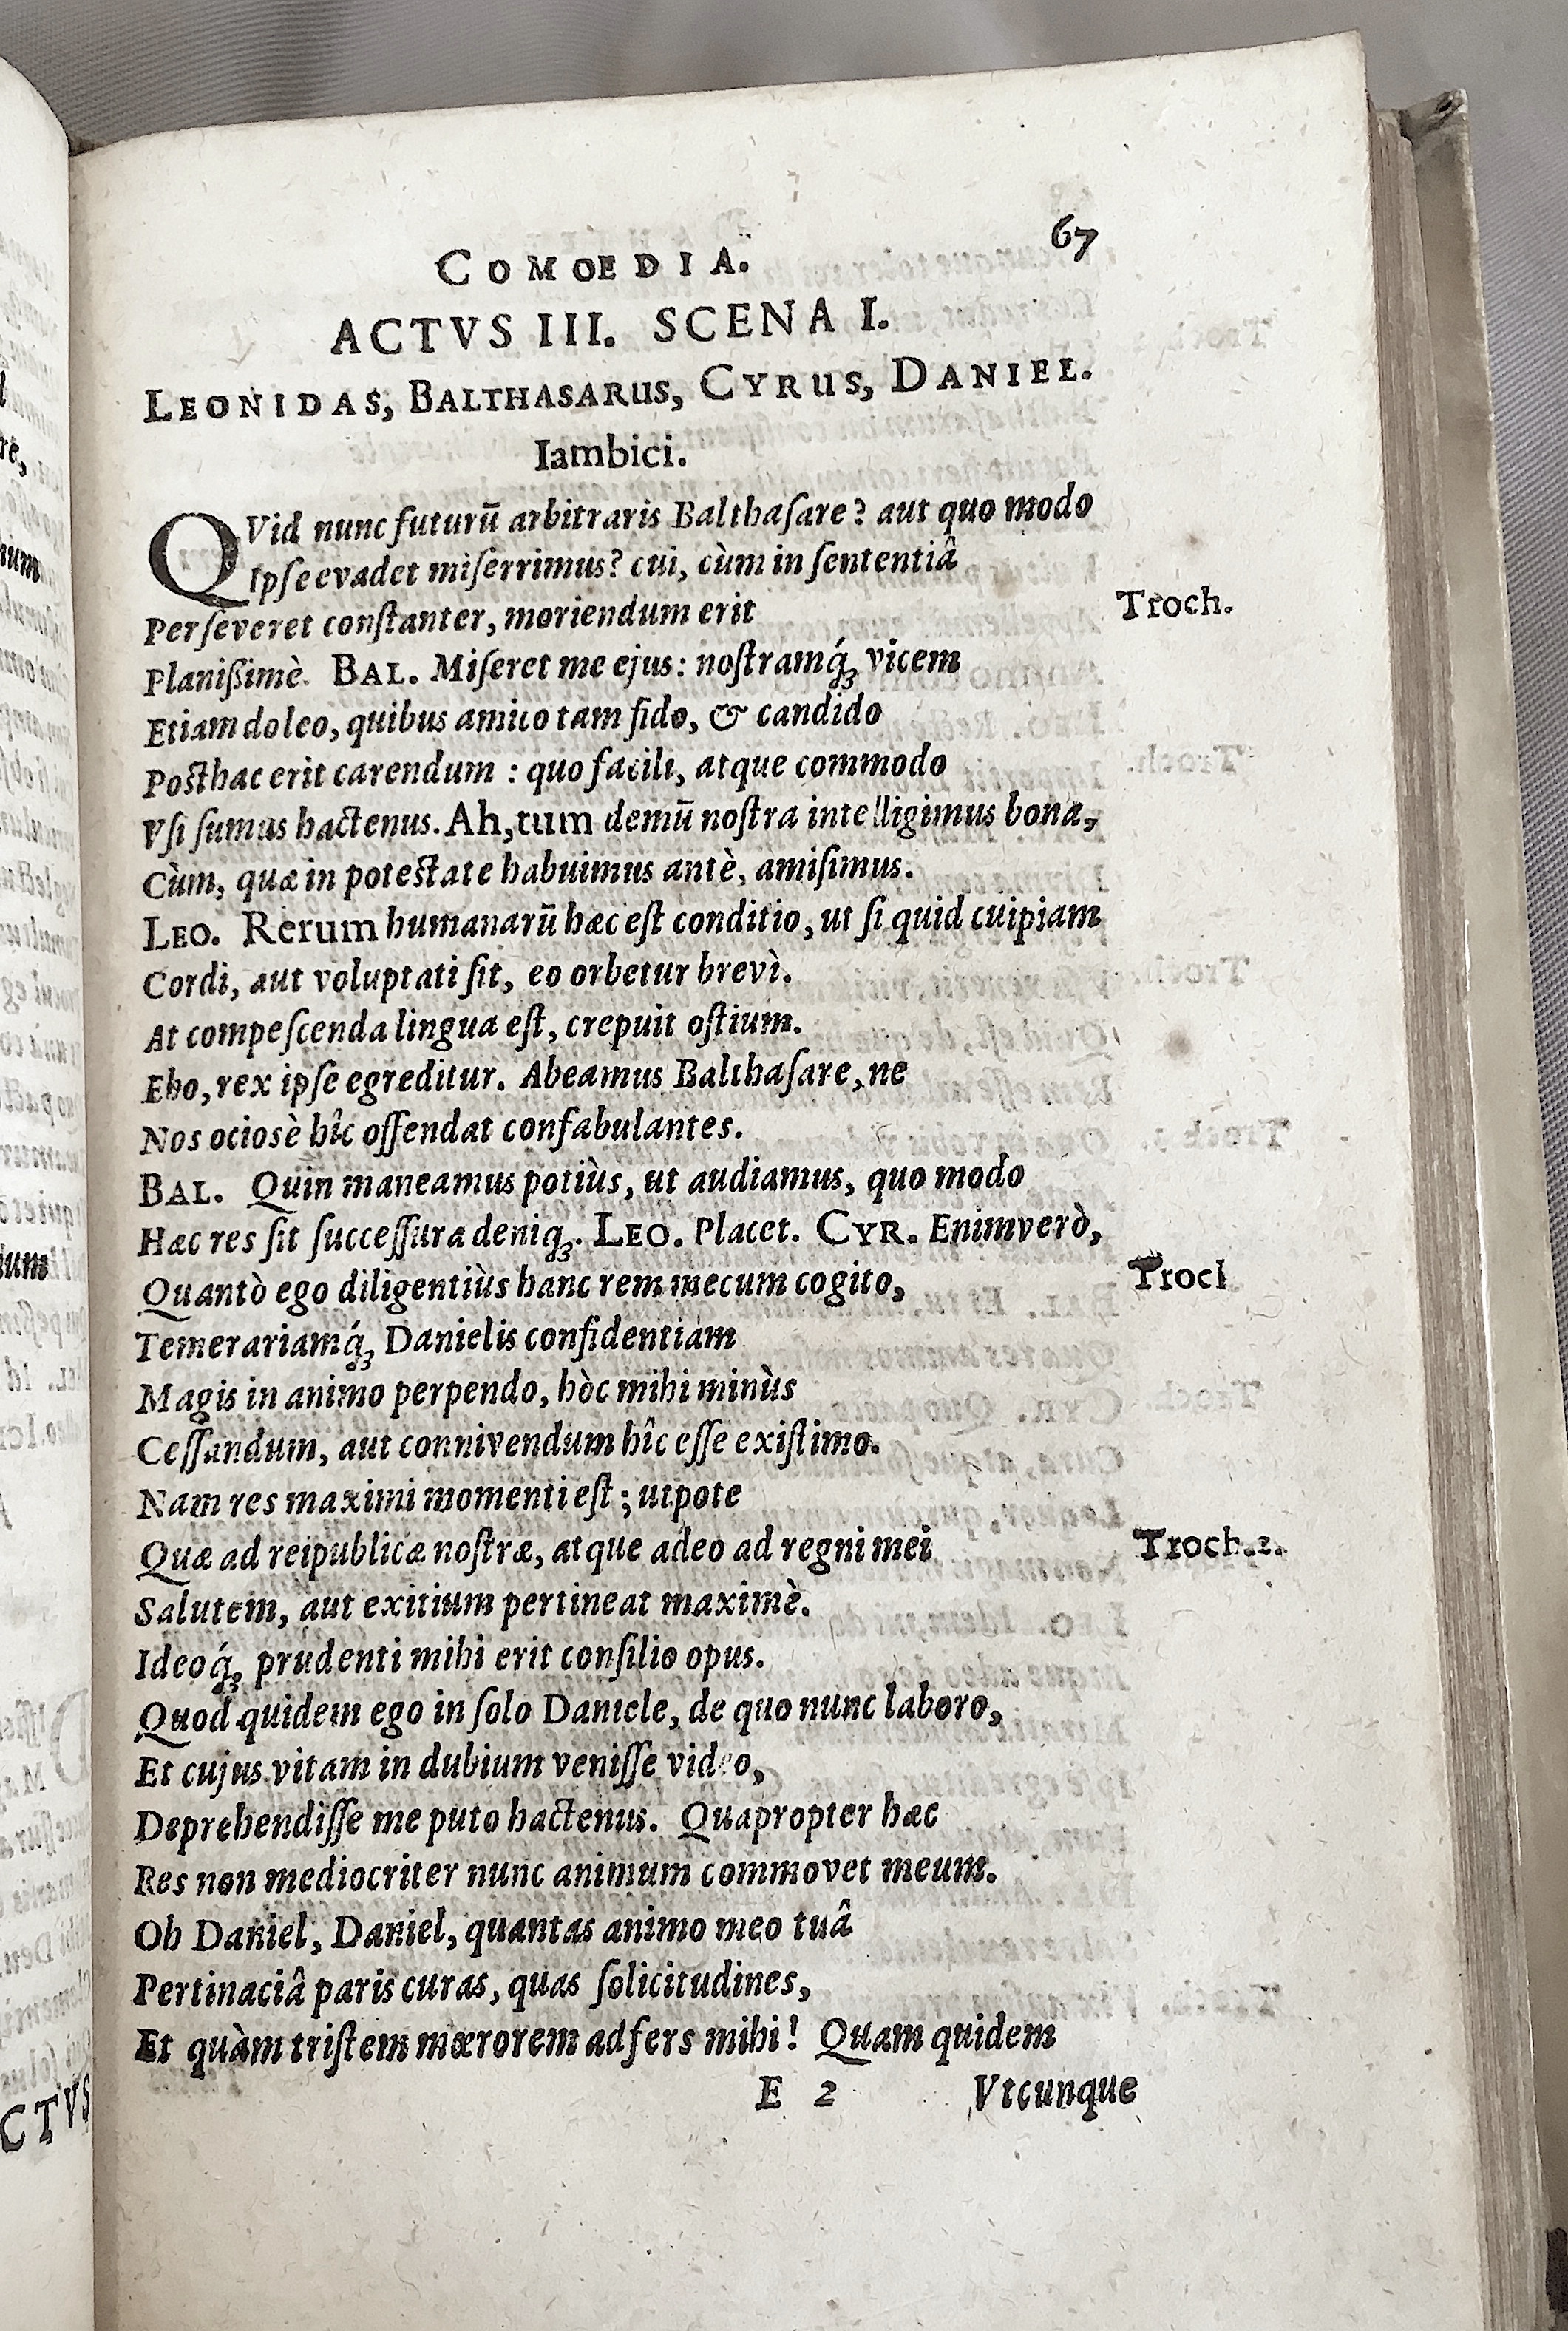 67
COMOEDIA.
ACTVS III. SCENA I.
LEONIDAS, BALTHASARUS, CYRUS, DANIEL.
Iambici.
QVid nunc futurū arbitraris Balthaſare? aut quo modo
Ipſe evadet miſerrimus? cui, cùm in ſententiâ
Perſeveret conſtanter, moriendum erit Troch.
Planißimè. BAL. Miſeret me ejus: noſtramq́ꝫ vicem
Etiam doleo, quibus amico tam fido, & candido
Posthac erit carendum : quo facili, atque commodo
Vſi ſumus hactenus. Ah, tum demū noſtra intelligimus bona,
Cùm, quæ in potestate habuimus antè, amiſimus.
LEO. Rerum humanarū hæc eſt conditio, ut ſi quid cuipiam
Cordi, aut voluptati ſit, eo orbetur brevì.
At compeſcenda lingua eſt, crepuit oſtium.
Eho, rex ipſe egreditur. Abeamus Balthaſare, ne
Nos ociosè hîc offendat confabulantes.
BAL. Quin maneamus potiùs, ut audiamus, quo modo
Hæc res ſit ſucceſſura deniqꝫ. LEO. Placet. CYR. Enimverò,
Quantò ego diligentiùs hanc rem mecum cogito, Trocl
Temerariamq́ꝫ Danielis confidentiam
Magis in animo perpendo, hòc mihi minùs
Ceſſandum, aut connivendum hîc eſſe exiſtimo.
Nam res maximi momenti eſt ; utpote
Quæ ad reipublicæ noſtræ, atque adeo ad regni mei Troch.2.
Salutem, aut exitium pertineat maximè.
Ideoq́ꝫ prudenti mihi erit conſilio opus.
Quod quidem ego in ſolo Daniele, de quo nunc laboro,
Et cujus vitam in dubium veniſſe video,
Deprehendiſſe me puto hactenus. Quapropter hæc
Res non mediocriter nunc animum commovet meum.
Oh Daniel, Daniel, quantas animo meo tuâ
Pertinaciâ paris curas, quas ſolicitudines,
Et quàm triſtem mœrorem adfers mihi! Quam quidem
E 2 Vtcunque